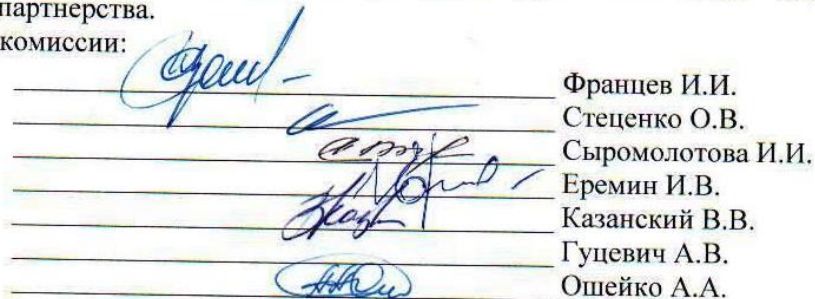 партнерства.
комиссии:
Францев И.И.
Стеценко О.В.
Сыромолотова И.И.
Еремин И.В.
Казанский В.В.
Гуцевич А.В.
Ошейко А.А.